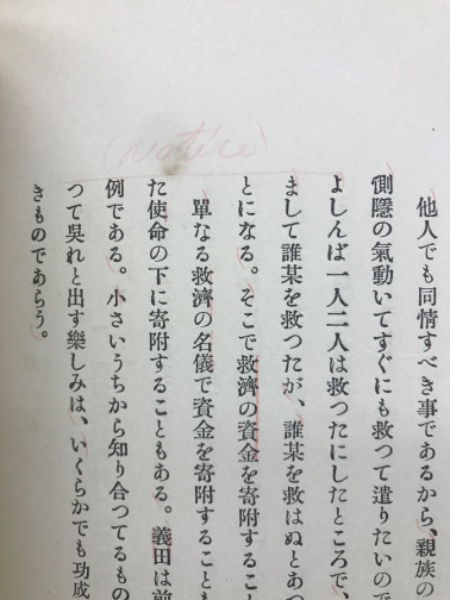 (Notice)
他人でも同情すべき事であるから、親族の
惻隱の氣動いてすぐにも救つて遣りたいので
よしんば一人二人は救つたにしたところで、
まして誰某を救つたが、誰某を救はぬとあつ
とになる。そこで救濟の資金を寄附すること
單なる救濟の名儀で資金を寄附することも
た使命の下に寄附することもある。義田は前
例である。小さいうちから知り合つてるもの
つて吳れと出す樂しみは、いくらかでも功成
きものであらう。